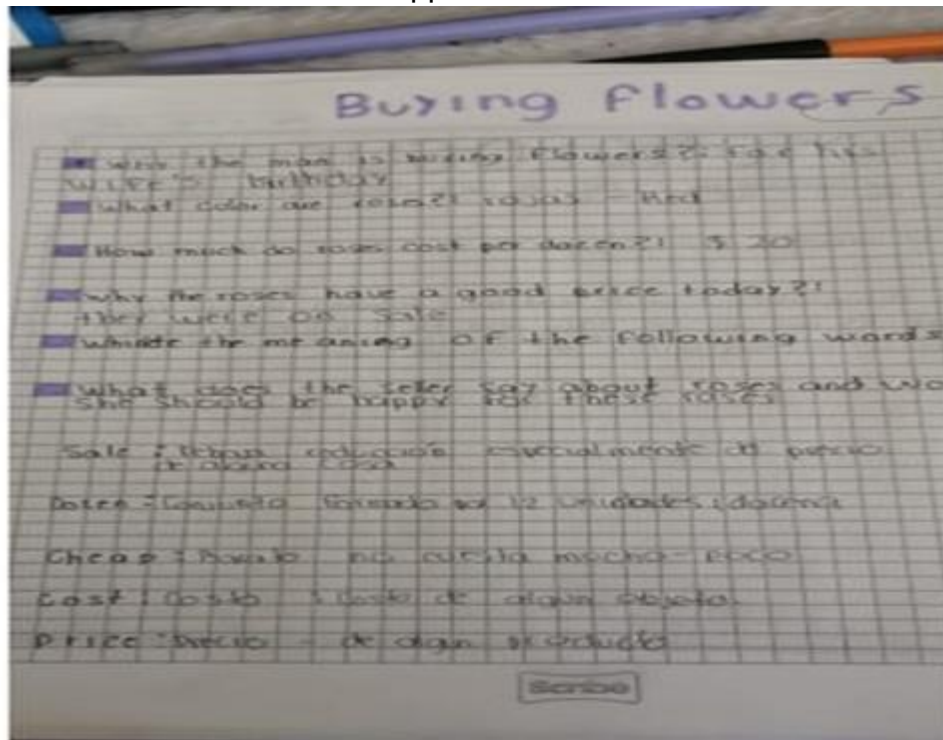 Buying Flowers
Why the man is buying flowers?: For his
wife's birthday
What color are roses?: rojas - Red
How much do roses cost per dozen?: $ 20
Why the roses have a good price today?:
They were on Sale
the meaning of the following words
What does the seller say about roses and
she should be happy for these roses
Sale : reducción especialmente de precio
de alguna cosa
Conjunto formado por 12 unidades : docena
Cheap : Barato no cuesta mucho - poco
Cost : Costo : Costo de algun objeto.
Price : Precio - de algun producto
Scribe